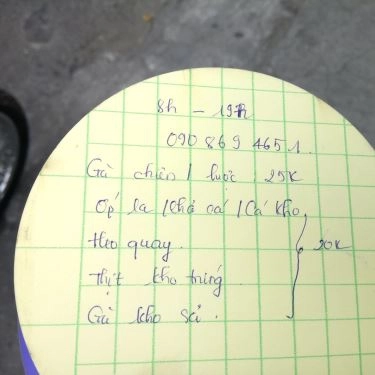 8h - 19h
090 869 4651.
Gà chiên / luộc : 25k
Ốp la / Chả cá / Cá kho
Heo quay.
Thịt kho trứng.
Gà kho sả.
20k